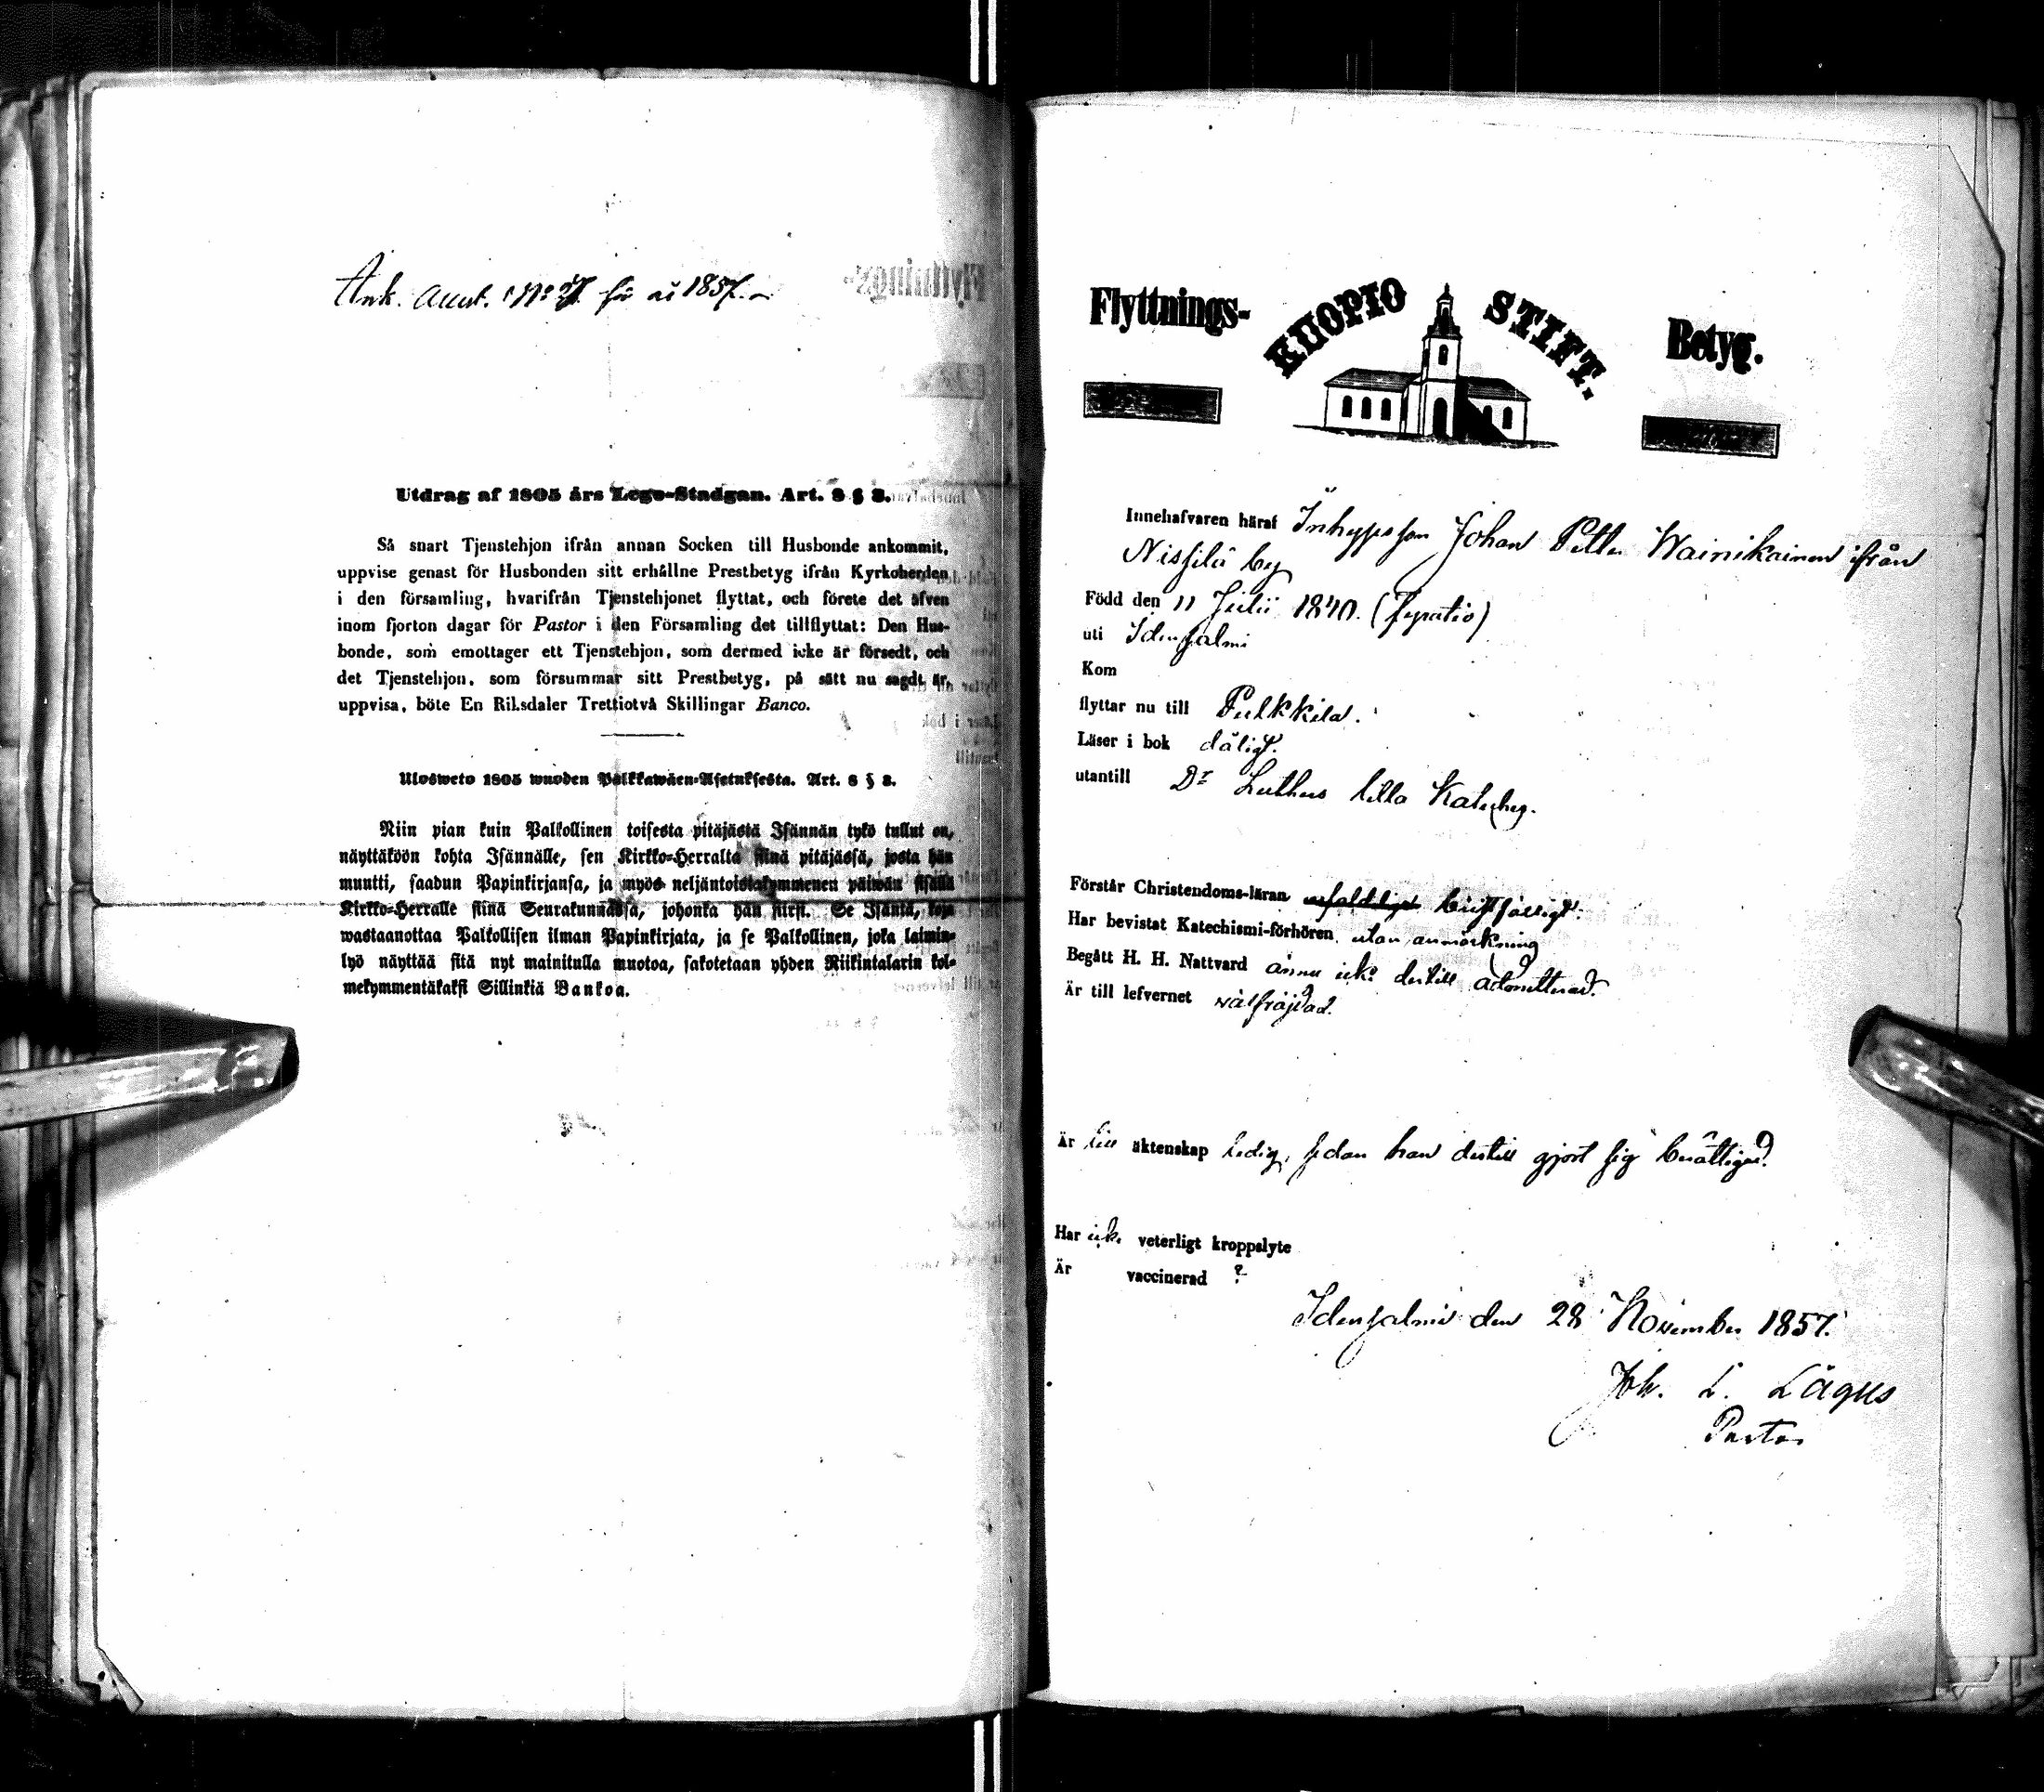 Ank. Annot. No 27. för år 1857.
Utdrag af 1805 års Lego-Stadgan. Art. 8 § 8.
Så snart Tjenstehjon ifrån annan Socken till Husbonde ankommit,
uppvise genast för Husbonden sitt erhållne Prestbetyg ifrån Kyrkoherden
i den församling, hvarifrån Tjenstehjonet flyttat, och förete det äfven
inom fjorton dagar för Pastor i den Församling det tillflyttat: Den Hus-
bonde, som emottager ett Tjenstehjon, som dermed icke är försedt, och
det Tjenstehjon, som försummar sitt Prestbetyg, på sätt nu sagdt är,
uppvisa, böte En Riksdaler Trettiotvå Skillingar Banco.
Ulosweto 1805 wuoden Palkkawäen-Asetuksesta. Art. 8 § 8.
Niin pian kuin Palkollinen toisesta pitäjästä Isännän tykö tullut on,
näyttäköön kohta Isännälle, sen Kirkko-Herralta siinä pitäjässä, josta hän
muutti, saadun Papinkirjansa, ja myös neljäntoistakymmenen päiwän sisällä
Kirkko-Herralle siinä Seurakunnassa, johonka hän siirsi. Se Isäntä, koja
wastaanottaa Palkollisen ilman Papinkirjata, ja se Palkollinen, joka laimin-
lyö näyttää sitä nyt mainitulla muotoa, sakotetaan yhden Riikintalarin kol-
mekymmentäkaksi Sillinkiä Bankoa.
Flyttnings- KUOPIO STIFT. Betyg.
Innehafvaren häraf Inhyses son Johan Petter Wainikainen ifrån
Nissilä by
Född den 11 Julii 1840. (fyratio)
uti Idensalmi
Kom
flyttar nu till Pulkkila.
Läser i bok dåligt.
utantill Dr Luthers lilla Kateches.
Förstår Christendoms-läran enfaldeligt bristfälligt.
Har bevistat Katechismi-förhören utan anmärkning
Begått H. H. Nattvard ännu icke dertill admitterad.
Är till lefvernet välfräjdad.
Är till äktenskap ledig, sedan han dertill gjort sig berättigad.
Har icke veterligt kroppslyte
Är vaccinerad ?
Idensalmi den 28 November 1857.
Joh. L. Lagus
Pastor